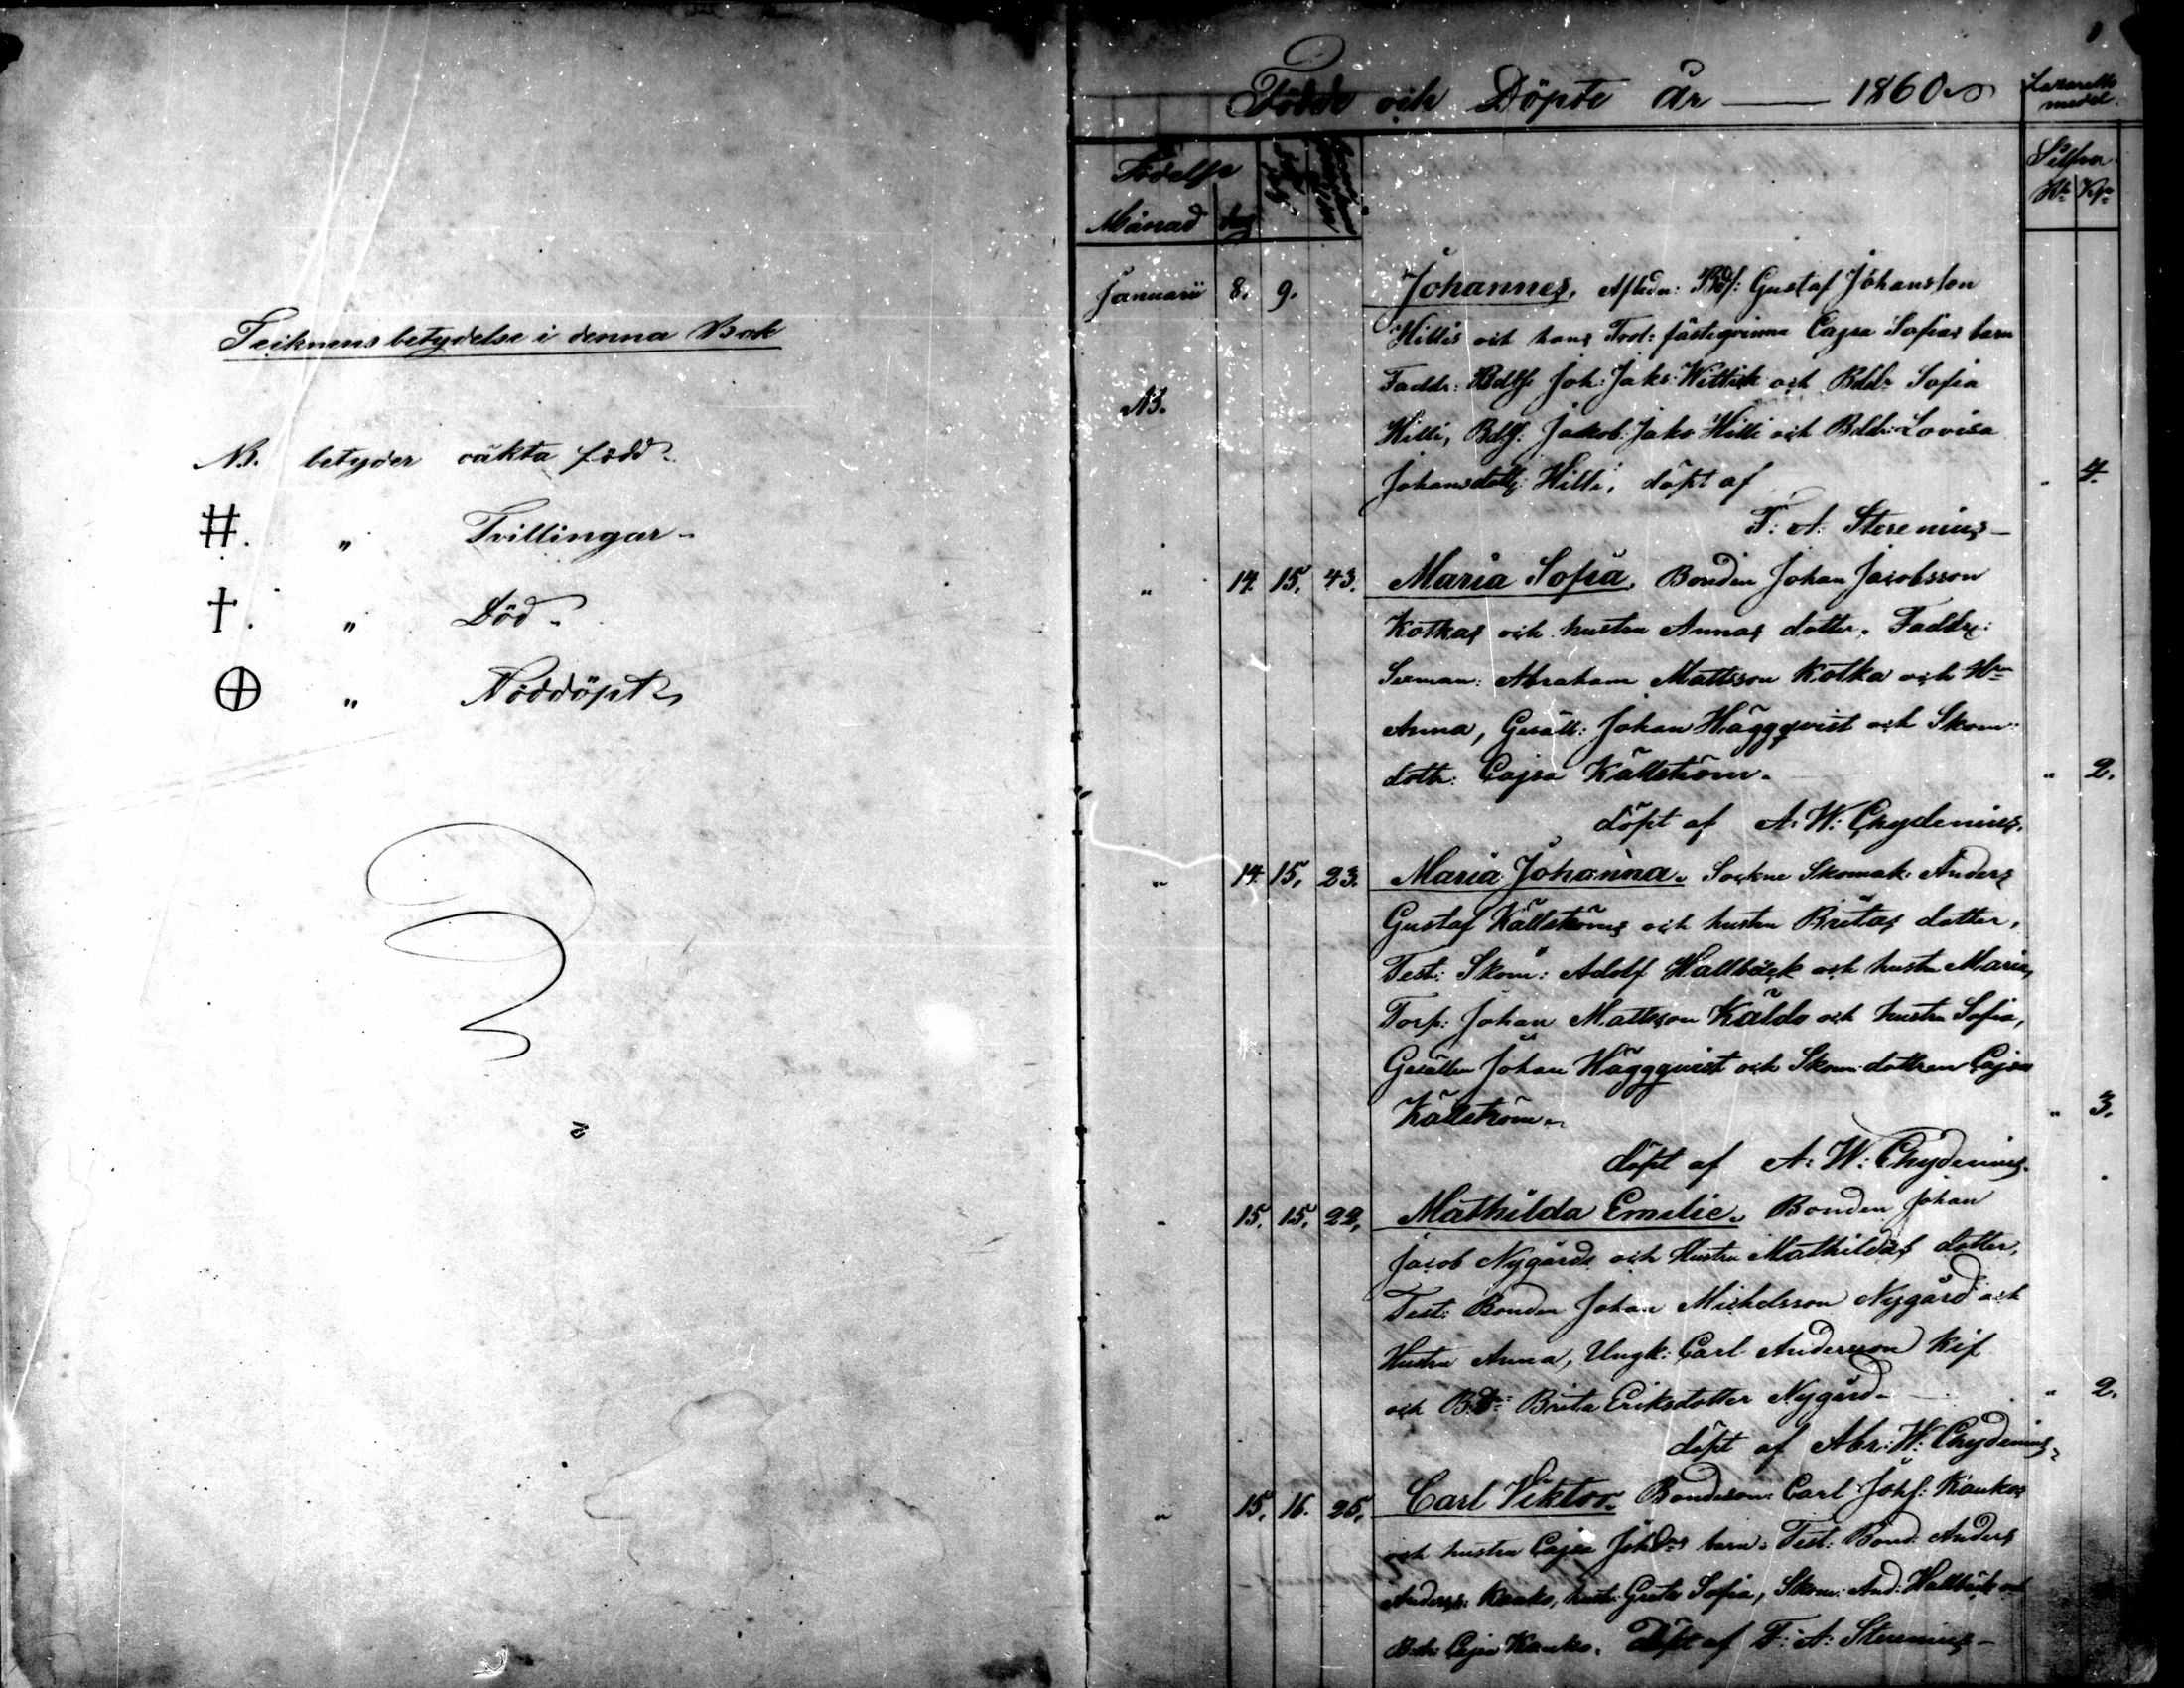 Teiknens betydelse i denna Bok
NB. betyder oäkta född.
#. " Tvillingar.
†. " Död.
⊕ " Nöddöpt
Födde och Döpte År — 1860
Lazaretts
medel.
Födelse
Månad dag
Silfver
Rb. Kop.
Januarii 8. 9. Johannes, Aflidn: Bds: Gustaf Johansson
Hillis och hans Trol: fästeqvinna Cajsa Sofias barn
NB.
Faddr: Bdss Joh: Jaks: Wittick och Bdd: Sofia
Hilli, Bds: Jakob: Jaks Hilli och Bdd: Lovisa
Johansdottr: Hilli, döpt af " 4.
F: A: Stenius
" 14. 15. 43. Maria Sofia. Bonden Johan Jacobsson
Kotkas och hustru Annas dotter. Faddr:
Sexman: Abraham Mattsson Kotka och H:
Anna, Gesäll: Johan Häggqvist och Skom:
dottr: Cajsa Källström. " 2.
döpt af A: W: Chydenius.
" 14. 15. 23. Maria Johanna. Sockne Skomak: Anders
Gustaf Källströms och hustru Britas dotter,
Test: Skom: Adolf Hallbäck och hustru Maria,
Torp: Johan Mattsson Käldo och hustru Sofia,
Gesällen Johan Häggqvist och Skom: dottren Cajsa
Källström. " 3.
döpt af A: W: Chydenius.
" 15. 15. 22. Mathilda Emilie. Bonden Johan
Jacob Nygårds och Hustru Mathildas dotter,
Test: Bonden Johan Michelsson Nygård och
Hustru Anna, Ungk: Carl Andersson Kif
och B:D: Brita Eriksdotter Nygård. " 2.
döpt af Abr: W: Chydenius.
" 15. 16. 25. Carl Viktor. Bondeson: Carl Johs: Kaukos
och hustru Cajsa Johds barn. Test: Bond: Anders
Anderss: Kauko, hust: Greta Sofia, Skom: And: Hallbäck och
Bdr: Cajsa Kauko. Döpt af F: A: Stenius